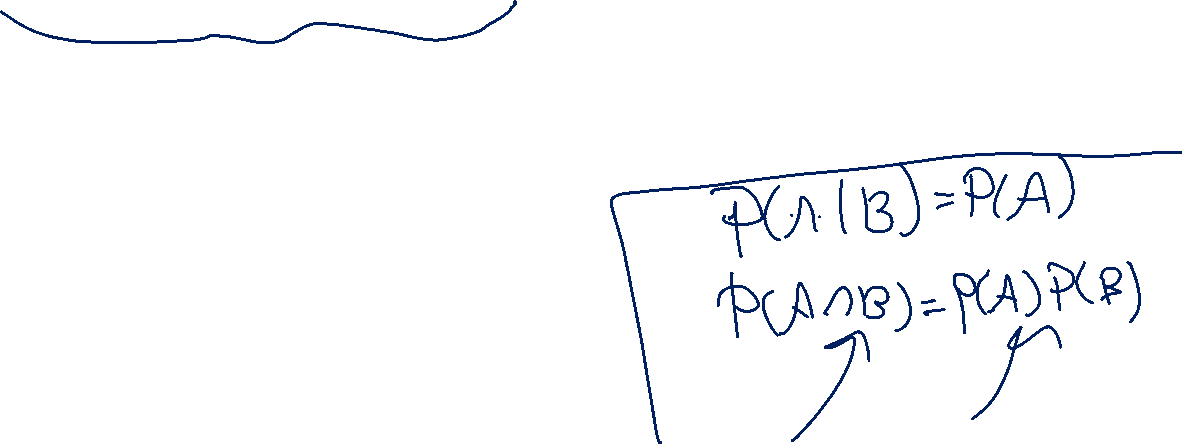 P(A|B)=P(A)
P(A∩B)=P(A)P(B)